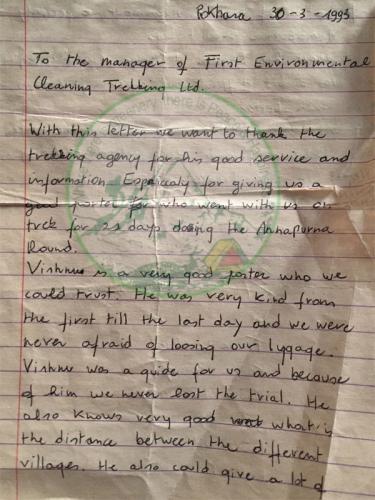 Pokhara 30-3-1995
To the manager of First Environmental
Cleaning Trekking Ltd.
With this letter we want to thank the
trekking agency for his good service and
information. Especialy for giving us a
good porter for who went with us on
trek for 23 days doing the Annapurna
Round.
Vishnu is a very good porter who we
could trust. He was very kind from
the first till the last day and we were
never afraid of loosing our lygage.
Vishnu was a guide for us and because
of him we never lost the trial. He
also knows very good what is
the distance between the different
villages. He also could give a lot of